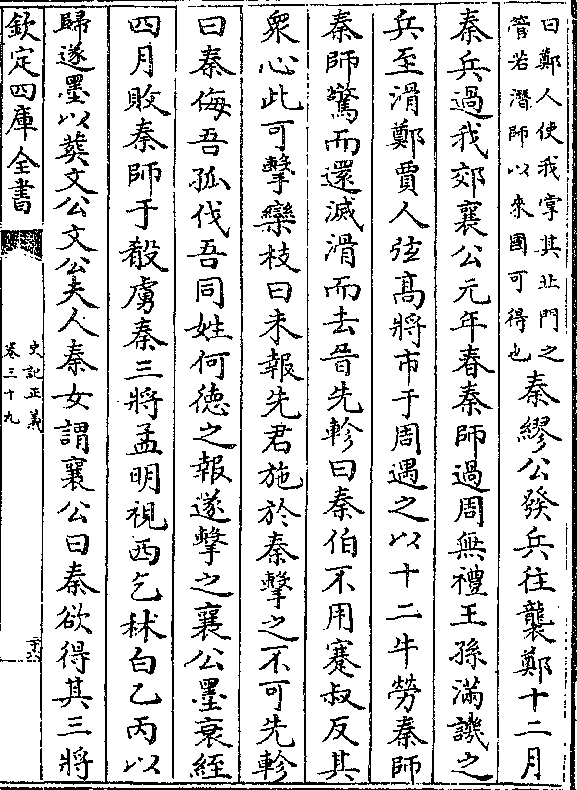 曰鄭人使我掌其北門之
管若潛師以來國可得也
秦繆公發兵往襲鄭十二月
秦兵過我郊襄公元年春秦師過周無禮王孫滿譏之
兵至滑鄭賈人弦髙將市于周遇之以十二牛勞秦師
秦師驚而還滅滑而去晉先軫曰秦伯不用蹇叔反其
衆心此可擊欒枝曰未報先君施於秦擊之不可先軫
曰秦侮吾孤伐吾同姓何德之報遂擊之襄公墨衰絰
四月敗秦師于殽虜秦三將孟明視西乞秫白乙丙以
歸遂墨以葬文公文公夫人秦女謂襄公曰秦欲得其三將
欽定四庫全書
史記正義
卷三十九
二十六